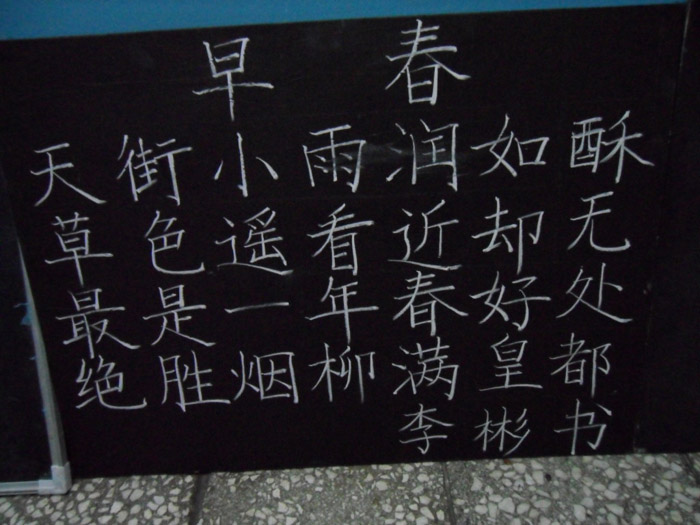 早春
天街小雨润如酥
草色遥看近却无
最是一年春好处
绝胜烟柳满皇都
李彬书